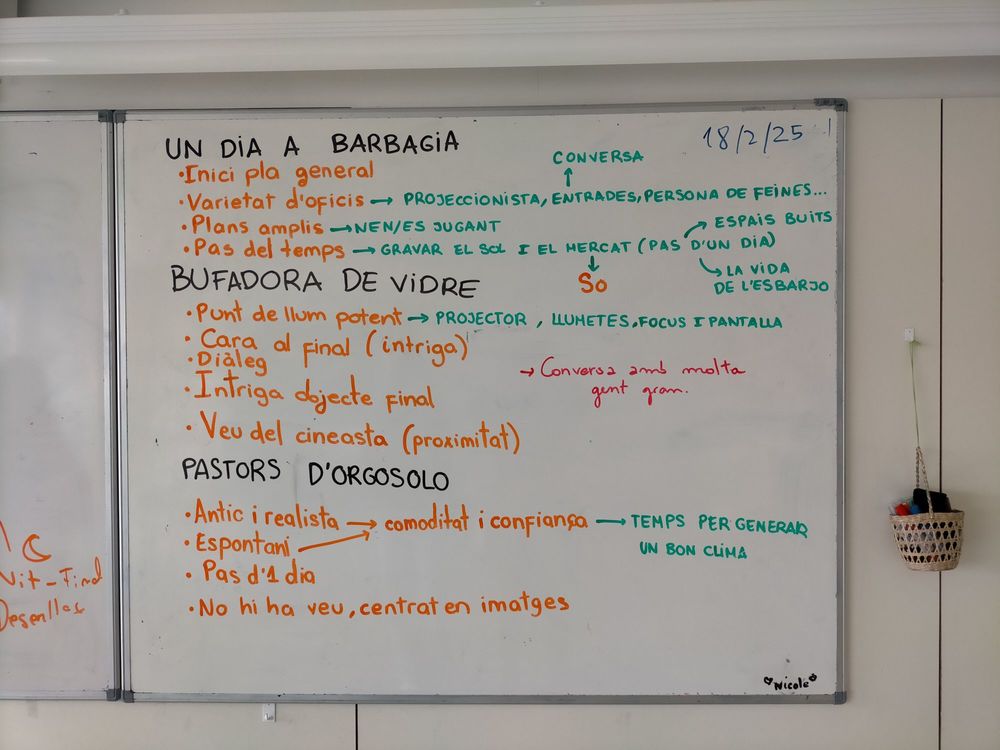 UN DIA A BARBAGIA
18/2/25
•Inici pla general
CONVERSA
•Varietat d'oficis → PROJECCIONISTA, ENTRADES, PERSONA DE FEINES...
•Plans amplis → NEN/ES JUGANT
ESPAIS BUITS
•Pas del temps → GRAVAR EL SOL I EL MERCAT (PAS D'UN DIA)
So
LA VIDA
DE L'ESBARJO
BUFADORA DE VIDRE
•Punt de llum potent → PROJECTOR, LLUMETES, FOCUS I PANTALLA
•Cara al final (intriga)
•Diàleg
→ Conversa amb molta
gent gran.
•Intriga dojecte final
•Veu del cineasta (proximitat)
PASTORS D'ORGOSOLO
•Antic i realista → comoditat i confiança → TEMPS PER GENERAR
UN BON CLIMA
•Espontani
•Pas d'1 dia
•No hi ha veu, centrat en imatges
Nit - Final
Desenllaç
Nicole